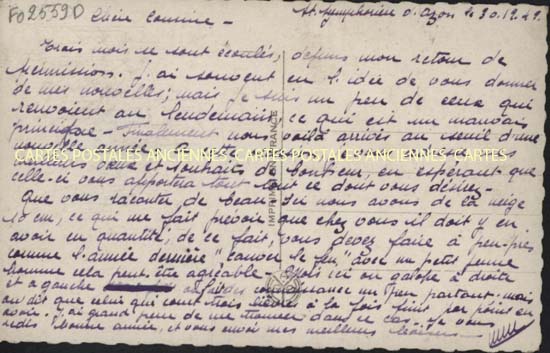 FO2559D
Chère Cousine -
St Symphorien d'Ozon le 30.12.49.
Trois mois se sont écoulés, depuis mon retour de
permission. J'ai souvent eu l'idée de vous donner
de mes nouvelles; mais je suis un peu de ceux qui
renvoient au lendemain, ce qui est un mauvais
principe - Finalement nous voilà arrivés au seuil d'une
nouvelle année
CARTES POSTALES ANCIENNES CARTES POSTALES ANCIENNES CARTES
meilleurs vœux et souhaits de bonheur, en espérant que
celle-ci vous apportera tout ce dont vous désirez -
Que vous raconte de beau, ici nous avons de la neige
10 cm, ce qui me fait prévoir que chez vous il doit y en
avoir en quantité, de ce fait, vous devez faire à peu près
comme l'année dernière "couver le feu" avec un petit jeune
homme cela peut être agréable - Après ici on galope à droite
et à gauche connaissance un peu partout; mais
on dit que celui qui court trois lièvres à la fois finit par point en
avoir. J'ai grand peur de me trouver dans ce cas - Je vous
redis "bonne année, et vous envoi mes meilleurs baisers -
IMPRIMÉ EN FRANCE